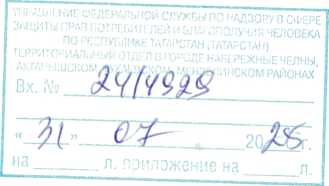 УПРАВЛЕНИЕ ФЕДЕРАЛЬНОЙ СЛУЖБЫ ПО НАДЗОРУ В СФЕРЕ
ЗАЩИТЫ ПРАВ ПОТРЕБИТЕЛЕЙ И БЛАГОПОЛУЧИЯ ЧЕЛОВЕКА
ПО РЕСПУБЛИКЕ ТАТАРСТАН (ТАТАРСТАН)
ТЕРРИТОРИАЛЬНЫЙ ОТДЕЛ В ГОРОДЕ НАБЕРЕЖНЫЕ ЧЕЛНЫ,
АКТАНЫШСКОМ, РАЙОНАХ
Вх. № 24/4929
"31" 07 2025г.
на л. приложение на л.